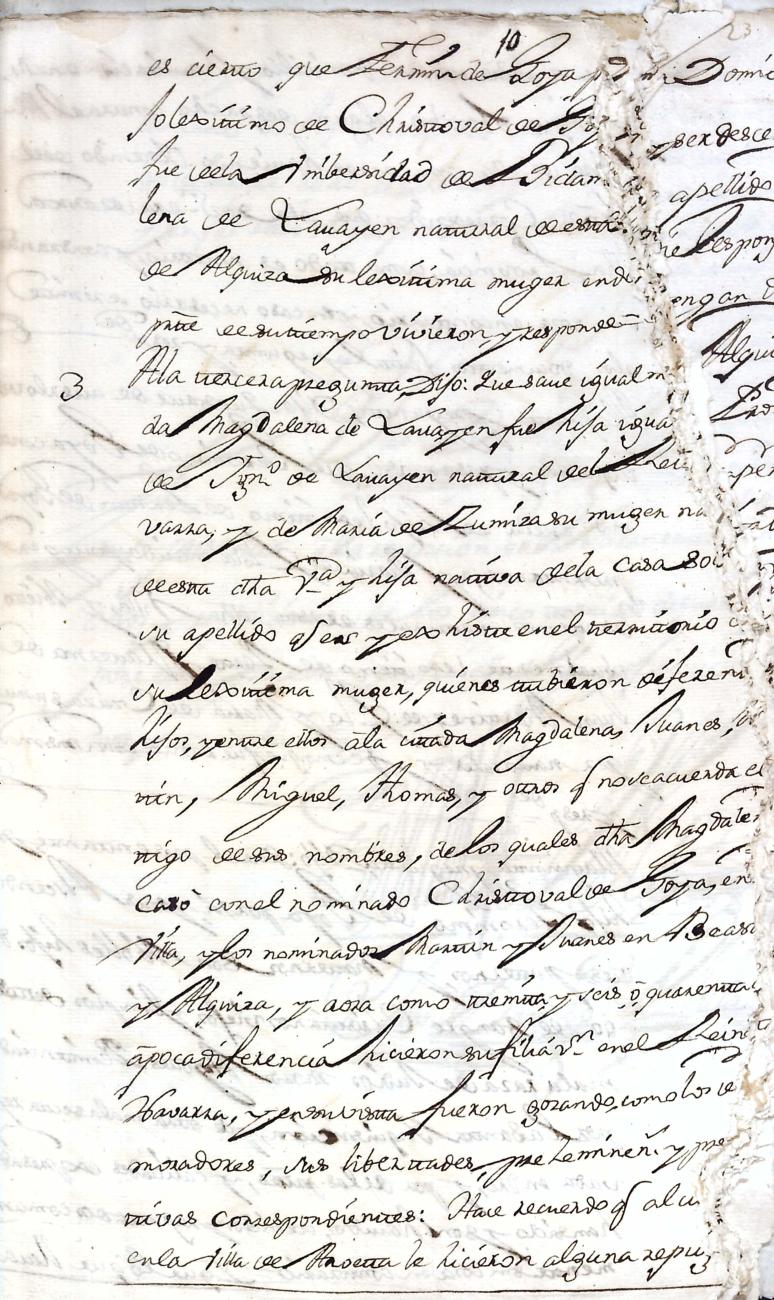 10
23
es cierto que Fermin de Goya
Domic
so lexitimo de Christoval de Goy
y ser desce
fue de la Vnibersidad de Vidan
apellido
lena de Lauayen natural de esta
respon
de Alquiza su lexitima muger en
ongan
prte de su tiempo vivieron, y responde
Alqui
3 A la tercera pregunta, Dijo: Que saue igualm
da Magdalena de Lauayen fue hija igua
de Jgn.o de Lauayen natural del Rei
per
varra, y de Maria de Zumiza su muger na
de esta dha V.a y hija nativa de la casa sol
su apellido q es y exhiste en el territorio
su Lexitima muger, quienes tubieron diferen
hijos, y entre ellos â la citada Magdalena, Juanes,
tin, Miguel, Thomas, y otros q no se acuerda el
tigo de sus nombres, de los quales dha Magdale
casó con el nominado Christoval de Goya, en
Villa, y los nominados Martin y Juanes en Beasa
y Alquiza, y aora como treinta y seis ô quarenta
â poca diferencia hicieron su filiaz.on en el Rein
Navarra, y en su vista fueron gozando, como los de
moradores, sus libertades, prehemineñ. y pre
tivas correspondientes: Hace recuerdo q al ci
en la Villa de Anoeta le hicieron alguna repug